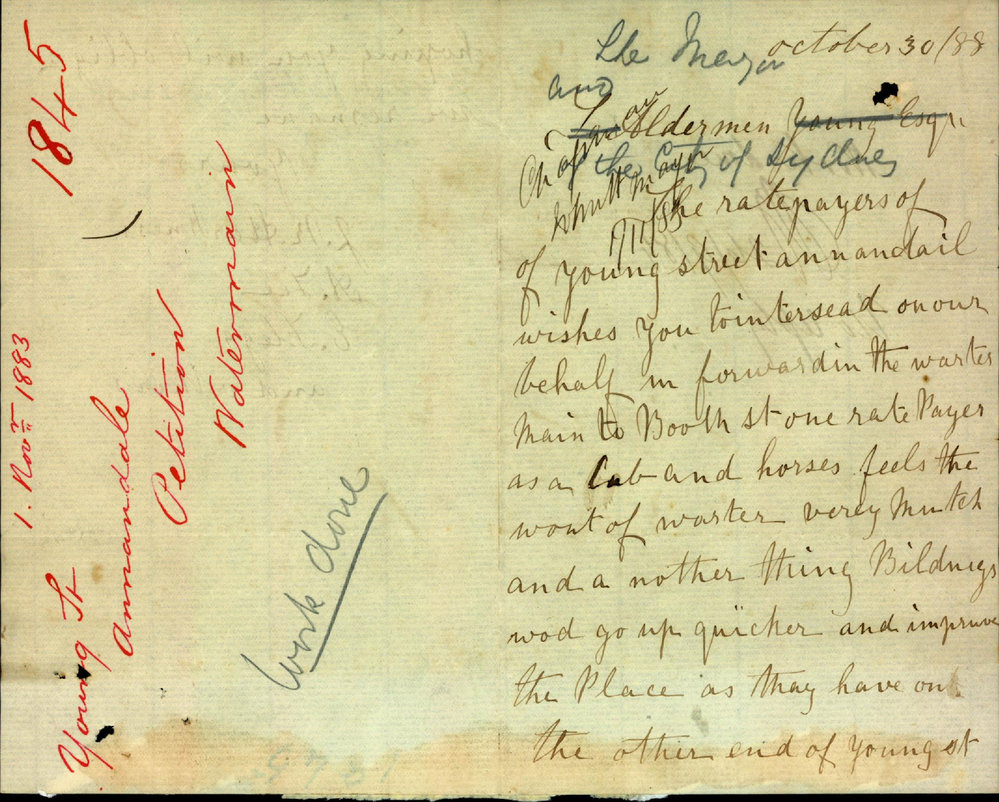 1845
1. Novr 1883
Young St
Annandale
Petition
Watermain
Work done
october 30/88
The Mayor
and
Aldermen Young Esqr
of the City of Sydney
Mayor
1/11/83
The ratepayers of
of young street annandail
wishes you to intersead on our
behalf in forwardin the warter
Main to Booth st one rate Payer
as a Cab and horses feels the
wont of warter verey Mutch
and a nother thing Bildnegs
wod go up quicker and impruve
the Place as thay have on
the other end of young st